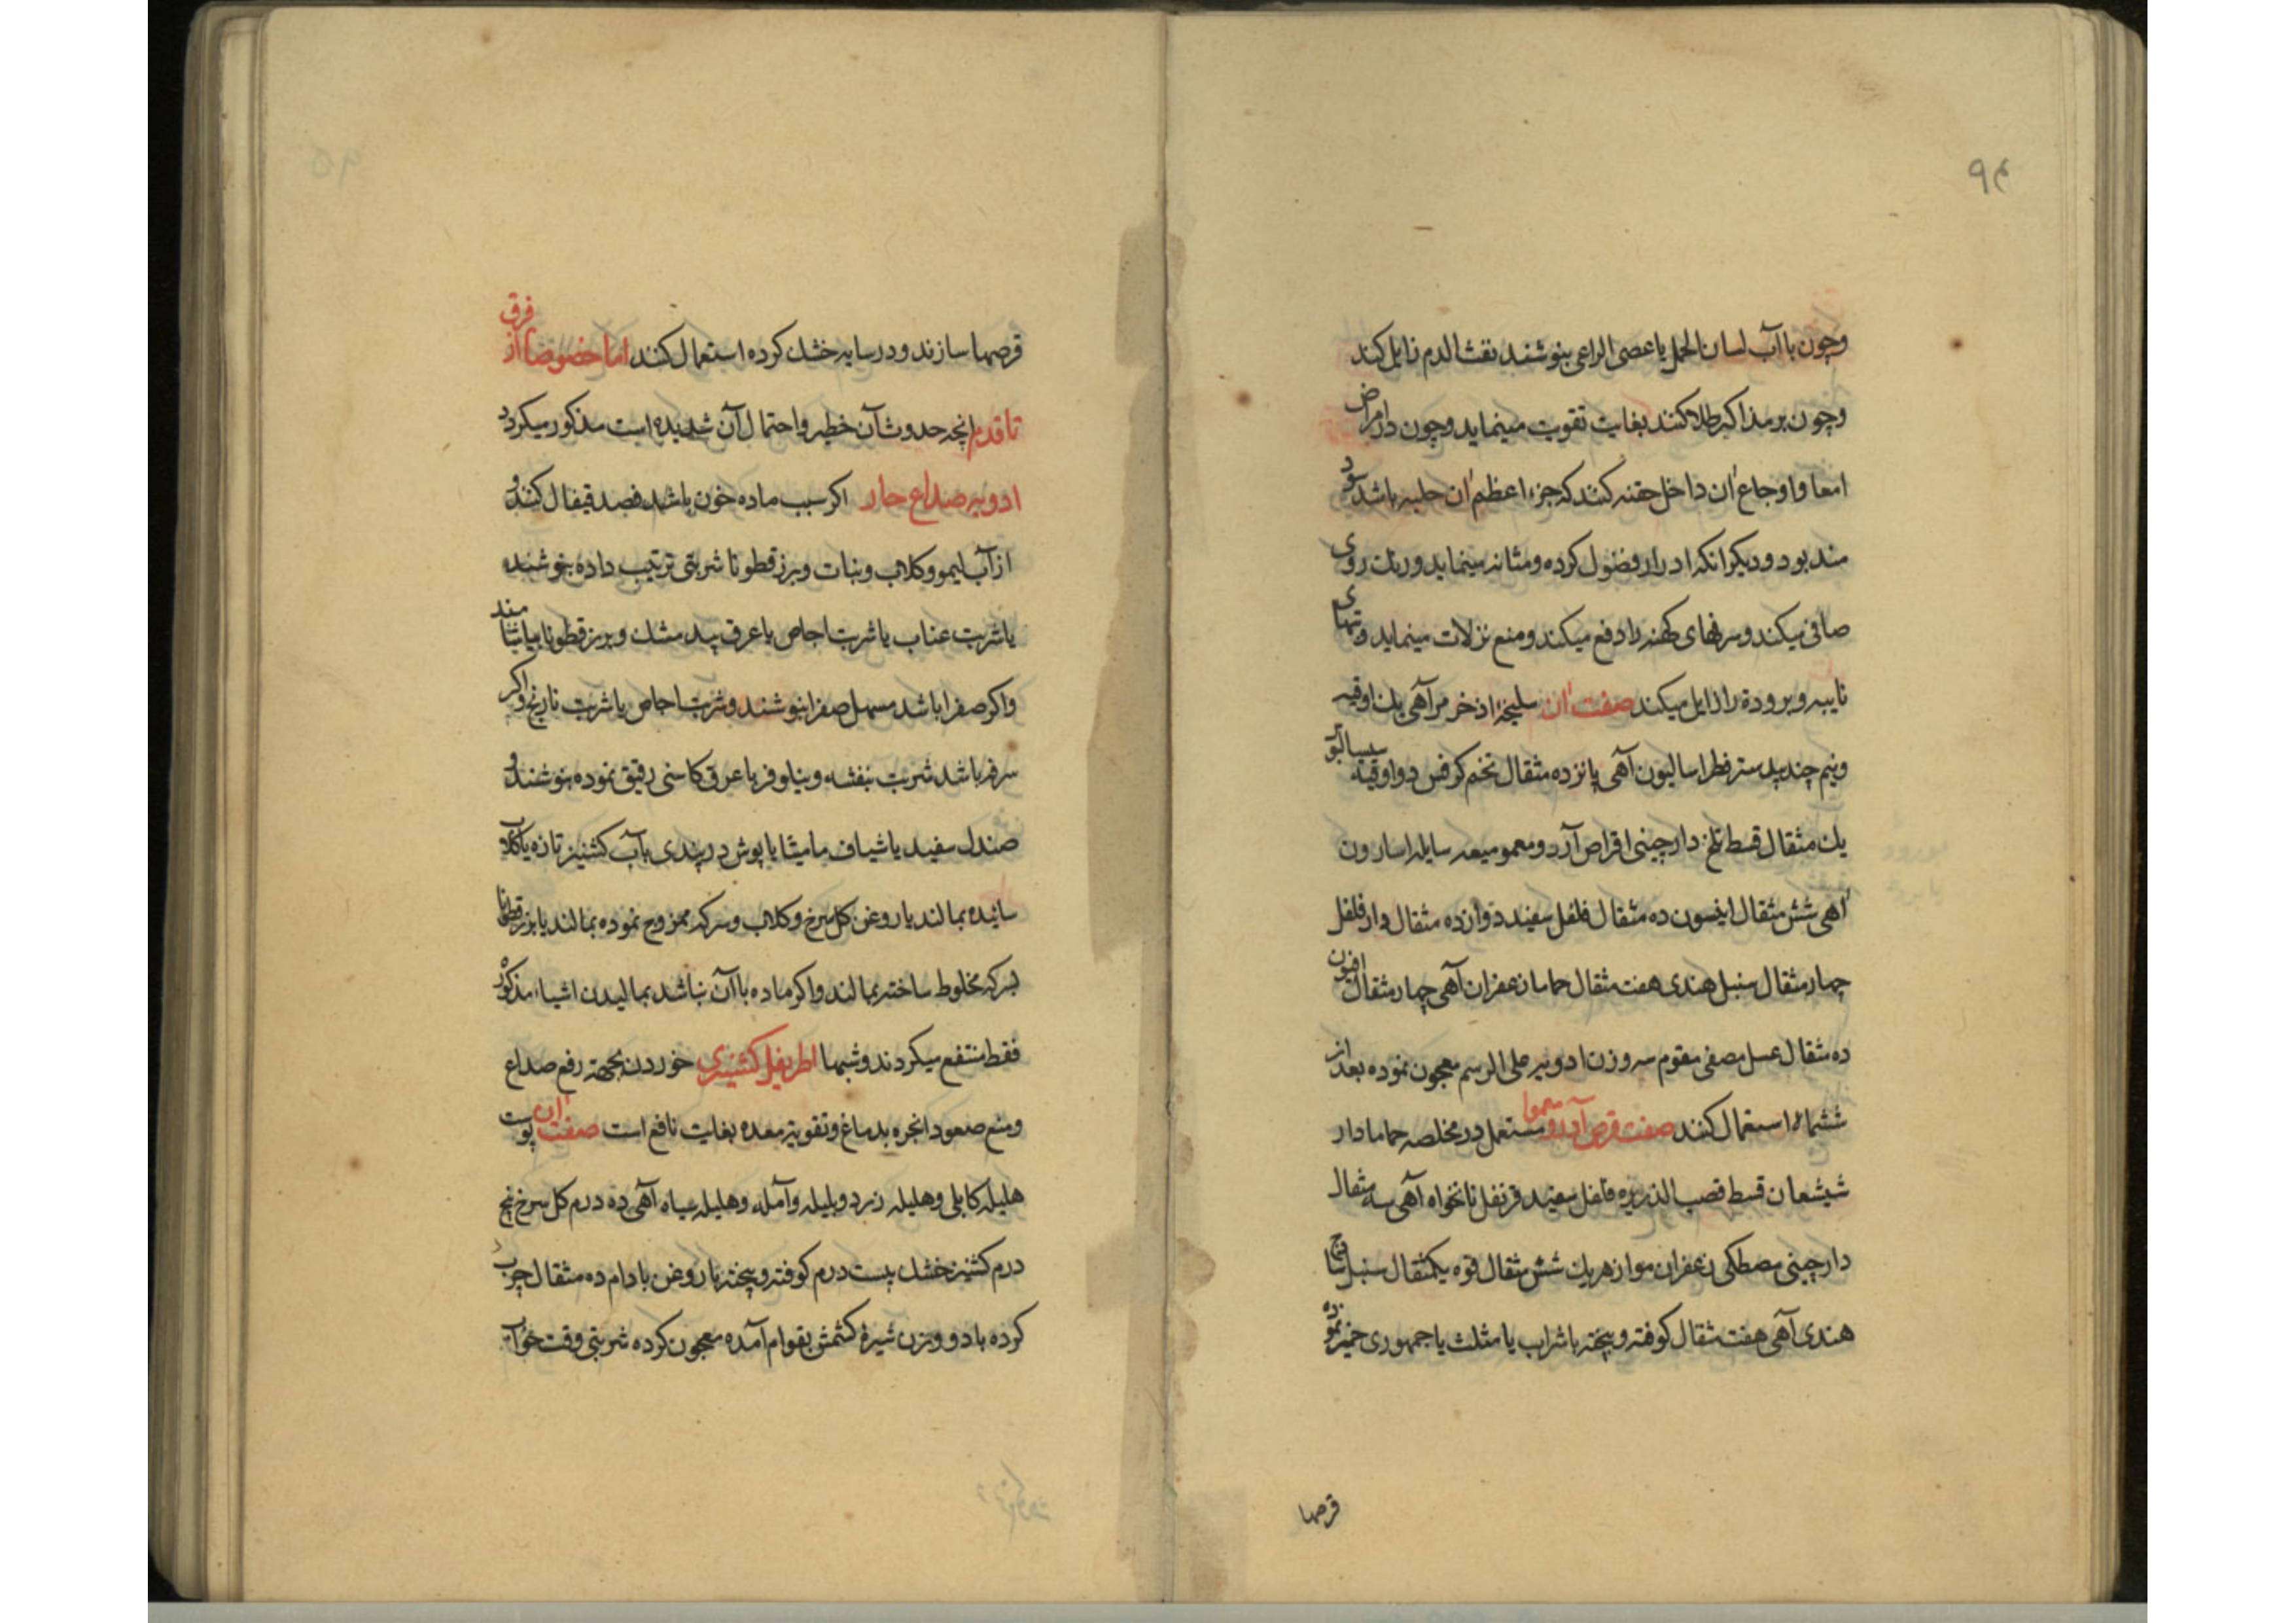 ۹۴
وچون باآب لسان الحمل یا عصی الراعی بنوشند نفث الدم زایل کند
وچون بر مذاکیر طلا کنند بغایت تقویت مینماید وچون در امراض
امعا و اوجاع ان داخل حقنه کنند که جزء اعظم ان حلبه باشد سود
مند بود و دیکر انکه ادرار فضول کرده ومثانه مینماید ورنك روی
صافی میکند وسرفهای کهنه را دفع میکند ومنع نزلات مینماید وتبهای
نایبه وبرودة را زایل میکند صفت ان سلیخه اذخر مر آهی یك اوقیه
ونیم جندبیدستر فطراسالیون آهی پانزده مثقال تخم کرفس دو اوقیه سیسالیوس
یك مثقال قسط تلخ دارچینی اقراص آردومعمو میعه سایله اسارون
اهی شش مثقال انیسون ده مثقال فلفل سفید دوازده مثقال دارفلفل
چهار مثقال سنبل هندی هفت مثقال حماما زعفران آهی چهار مثقال افیون
ده مثقال عسل مصفی مقوم سه وزن ادویه علی الرسم معجون نموده بعد از
ششماه استعمال کنند صفت قرص آردومعمو مستعمل در مخلصه حماما دار
شیشعان قسط قصب الذریره فلفل سفید قرنفل نانخواه آهی سه مثقال
دارچینی مصطکی زعفران مو از هریك شش مثقال قوه یکمثقال سنبل
هندی آهی هفت مثقال کوفته وبیخته باشراب یا مثلث یا جمهوری خمیر نموده
قرصها
قرصها سازند ودر سایه خشك کرده استعمال کنند اما خصوصا از فرق
تا قدم انچه حدوث آن خطیر واحتمال آن شدیده است مذکور میکردد
ادویه صداع حار اکر سبب ماده خون باشد فصد قیفال کنند و
از آب لیمو وکلاب ونبات وبزرقطونا شربتی ترتیب داده بنوشند
یا شربت عناب یا شربت اجاص با عرق بید مشك وبزرقطونا بیاشامند
واکر صفرا باشد مسهل صفرا بنوشند وشربت اجاص یا شربت نارنج و اکر
سرفه باشد شربت بنفشه ونیلوفر با عرق کاسنی رقیق نموده بنوشند و
صندل سفید یا شیاف مامیثا یا پوش دربندی بآب کشنیز تازه یا کلاب
سائیده بمالند یا روغن کل سرخ وکلاب وسرکه ممزوج نموده بمالند یا بزرقطونا
بسرکه مخلوط ساخته بمالند واکر ماده باآن نباشد بمالیدن اشیاء مذکور
فقط منتفع میکردند وشبها اطریفل کشنیزی خوردن بجهة رفع صداع
ومنع صعود ابخره بدماغ وتقویة معده بغایت نافع است صفت ان پوست
هلیله کابلی وهلیله زرد وبلیله وآمله وهلیله سیاه آهی ده درم کل سرخ پنج
درم کشنیز خشك بیست درم کوفته وبیخته باروغن بادام ده مثقال چرب
کرده با دو وزن شیرۀ کشمش بقوام آمده معجون کرده شربتی وقت خواب